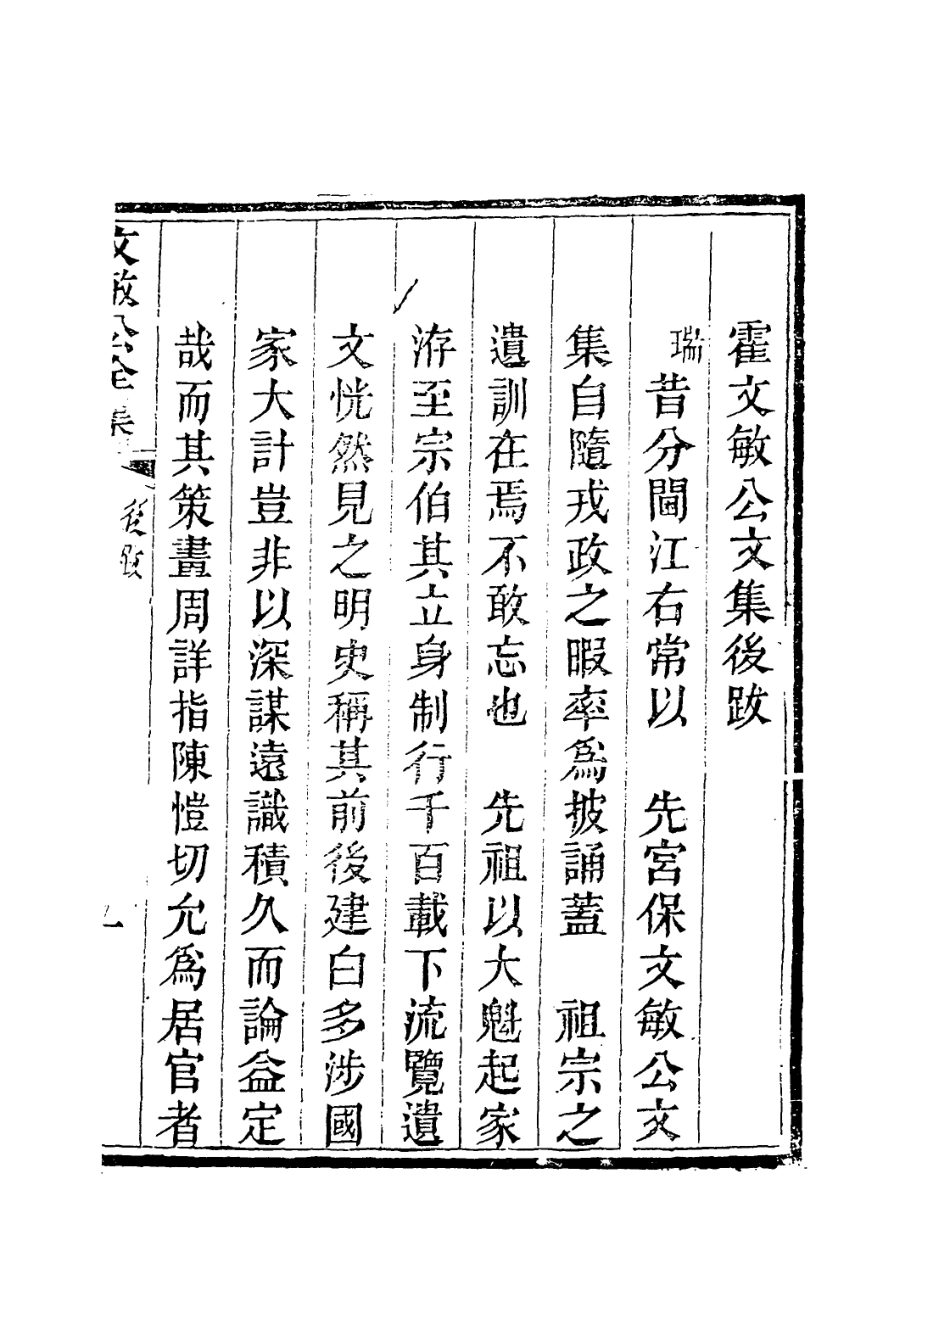 霍文敏公文集後跋
瑞昔分閫江右常以　先宮保文敏公文
集自隨戎政之暇率爲披誦蓋　祖宗之
遺訓在焉不敢忘也　先祖以大魁起家
洊至宗伯其立身制行千百載下流覽遺
文恍然見之明史稱其前後建白多涉國
家大計豈非以深謀遠識積久而論益定
哉而其策畫周詳指陳愷切允爲居官者
文敏公全集
後跋
一